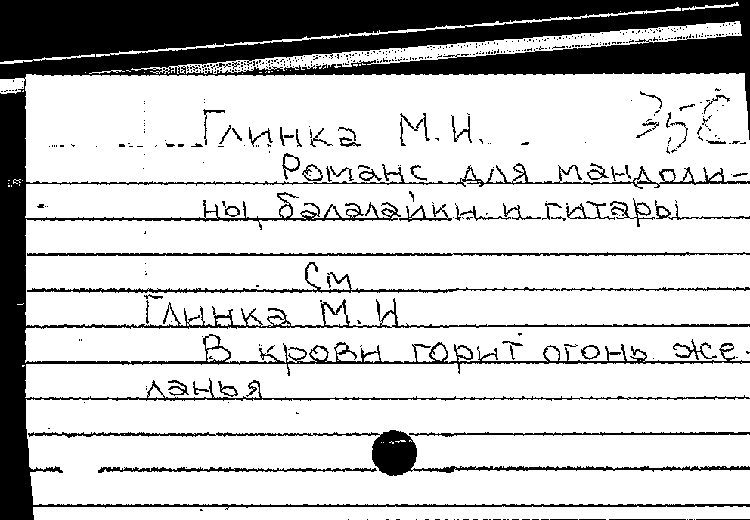 Глинка М.И.
Романс для мандоли-
ны, балалайки и гитары
См
Глинка М.И
В крови горит огонь же-
ланья